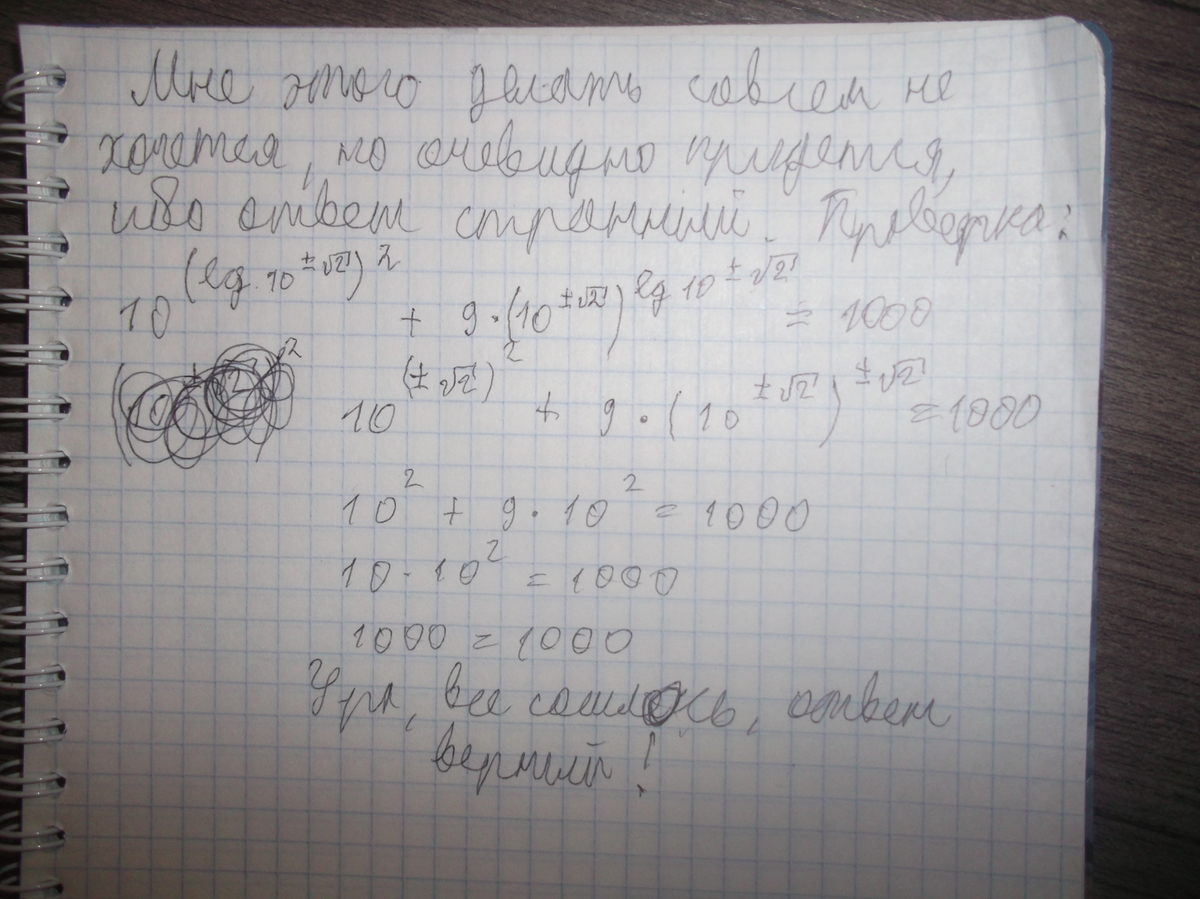 Мне этого делать совсем не
хочется, но очевидно придется,
ибо ответ странный. Проверка:
10^(lg 10^(±√2))^2 + 9·(10^(±√2))^(lg 10^(±√2)) = 1000
10^(±√2)^2 + 9·(10^(±√2))^(±√2) = 1000
10^2 + 9·10^2 = 1000
10·10^2 = 1000
1000 = 1000
Ура, все сошлось, ответ
верный!